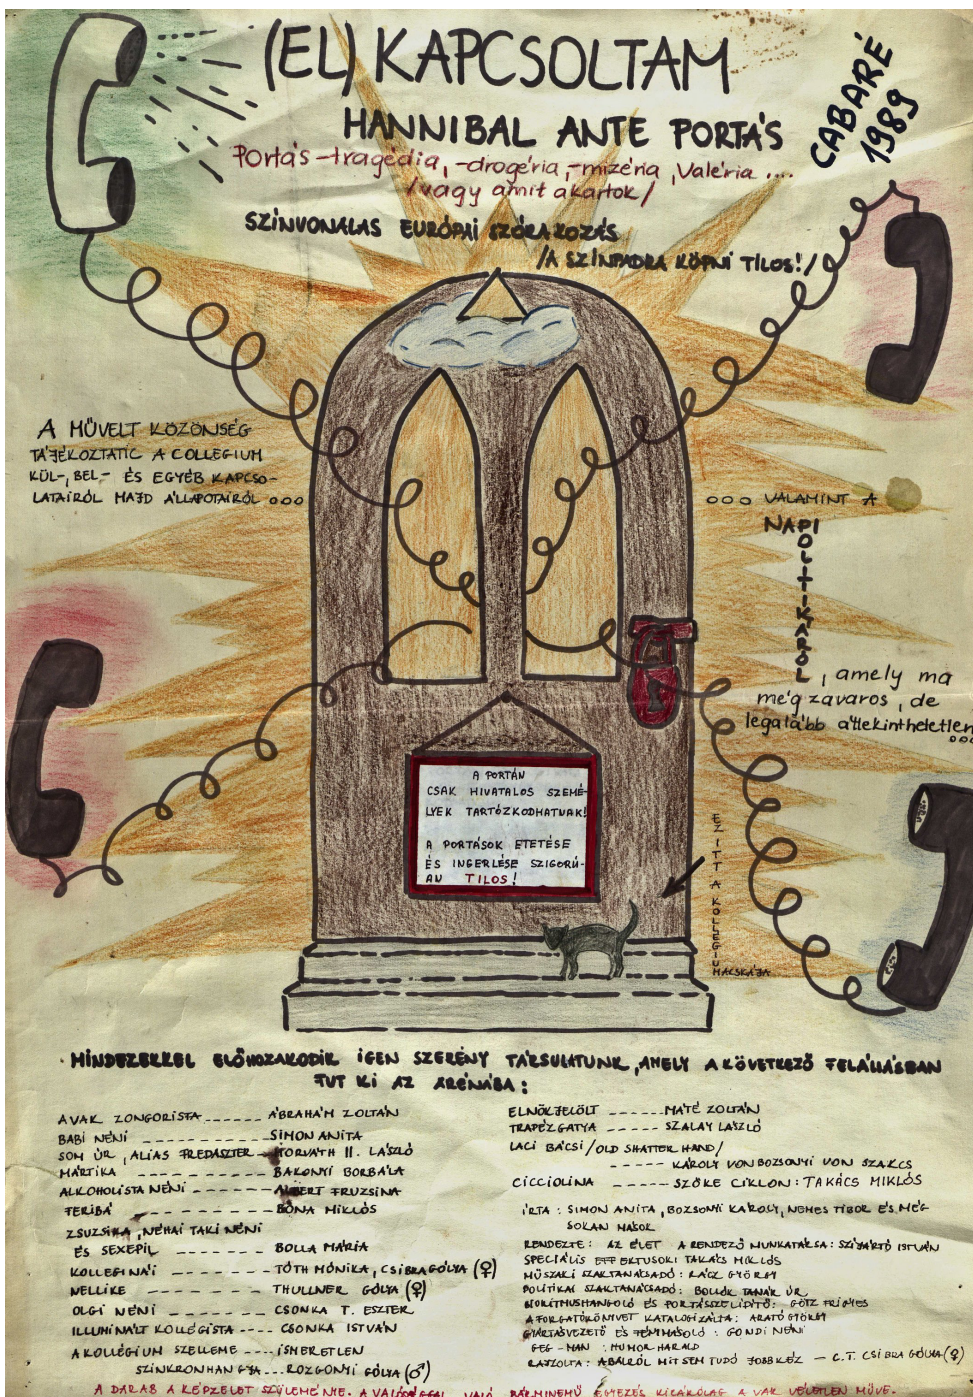 (EL) KAPCSOLTAM
CABARÉ
1989
HANNIBAL ANTE PORTÁS
Portás-tragédia, -drogéria, -mizéria, Valéria ....
/vagy amit akartok/
SZÍNVONALAS EURÓPAI SZÓRAKOZÁS
/A SZÍNPADRA KÖPNI TILOS!/
A MŰVELT KÖZÖNSÉG
TÁJÉKOZTATIC A COLLEGIUM
KÜL-, BEL- ÉS EGYÉB KAPCSO-
LATAIRÓL MAJD ÁLLAPOTAIRÓL ooo
ooo VALAMINT A
NAPI
POLITIKÁRÓL, amely ma
még zavaros, de
legalább áttekinthetetlen
ooo
A PORTÁN
CSAK HIVATALOS SZEMÉ-
LYEK TARTÓZKODHATNAK!
A PORTÁSOK ETETÉSE
ÉS INGERLÉSE SZIGORÚ-
AN TILOS!
EZ ITT A KOLLÉGIUM
MACSKÁJA
MINDEZEKKEL ELŐHOZAKODIK IGEN SZERÉNY TÁRSULATUNK, AMELY A KÖVETKEZŐ FELÁLLÁSBAN
FUT KI AZ ARÉNÁBA:
A VAK ZONGORISTA ------ ÁBRAHÁM ZOLTÁN
BABI NÉNI ---------- SIMON ANITA
SOM ÚR, ALIAS FREDASZTER - HORVÁTH II. LÁSZLÓ
MÁRTIKA -------- BAKONYI BORBÁLA
ALKOHOLISTA NÉNI ------ ALBERT FRUZSINA
TERIBÁ -------- BÓNA MIKLÓS
ZSUZSIKA, NÉHAI TAKI NÉNI
ÉS SEXEPIL ------- BOLLA MÁRIA
KOLLEGINÁI ------- TÓTH MÓNIKA, CSIBRA GÓLYA (♀)
NELLIKE -------- THULLNER GÓLYA (♀)
OLGI NÉNI ------- CSONKA T. ESZTER
ILLUMINÁLT KOLLÉGISTA ---- CSONKA ISTVÁN
A KOLLÉGIUM SZELLEME --- ISMERETLEN
SZINKRONHANGJA --- ROZGONYI GÓLYA (♂)
ELNÖKJELÖLT ------ MÁTÉ ZOLTÁN
TRAPÉZGATYA ----- SZALAY LÁSZLÓ
LACI BÁCSI /OLD SHATTER HAND/
----- KÁROLY VON BOZSONYI VON SZAKCS
CICCIOLINA ----- SZŐKE CIKLON: TAKÁCS MIKLÓS
ÍRTA: SIMON ANITA, BOZSONYI KÁROLY, NEMES TIBOR ÉS MÉG
SOKAN MÁSOK
RENDEZTE: AZ ÉLET A RENDEZŐ MUNKATÁRSA: SZIJÁRTÓ ISTVÁN
SPECIÁLIS EFF EKTUSOK: TAKÁCS MIKLÓS
MŰSZAKI SZAKTANÁCSADÓ: RÁCZ GYÖRGY
POLITIKAI SZAKTANÁCSADÓ: BOLLÓK TANÁR ÚR
BIORITMUSHANGOLÓ ÉS PORTÁSSZELIDÍTŐ: GÖTZ FRIGYES
A FORGATÓKÖNYVET KATALOGIZÁLTA: ARATÓ GYÖRGY
GYÁRTÁSVEZETŐ ÉS FÉNYMÁSOLÓ: GONDI NÉNI
GEG-MAN: HUMOR HARALD
RAJZOLTA: A BALRÓL MIT SEM TUDÓ JOBB KÉZ - C.T. CSIBRA GÓLYA (♀)
A DARAB A KÉPZELET SZÜLEMÉNYE. A VALÓSÁGGAL VALÓ BÁRMINEMŰ EGYEZÉS KIZÁRÓLAG A VAK VÉLETLEN MŰVE.